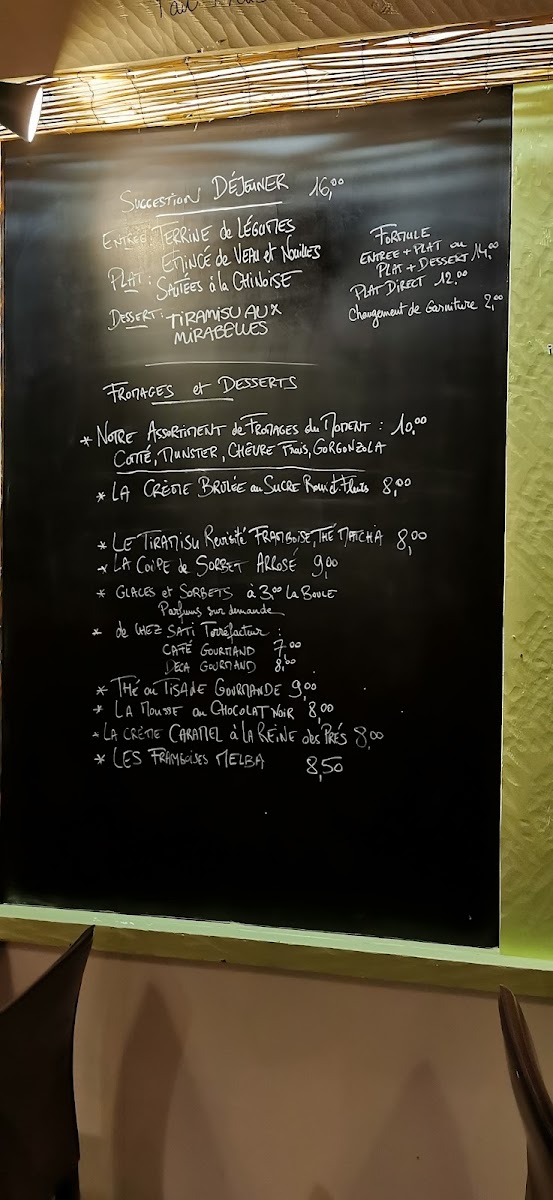 SUGGESTION DÉJEUNER 16,00
ENTRÉE: TERRINE de LÉGUMES
PLAT: EMINCÉ de VEAU et NOUILLES
SAUTÉES à la CHINOISE
DESSERT: TIRAMISU AUX
MIRABELLES
FORMULE
ENTREE + PLAT ou
PLAT + DESSERT 14,00
PLAT DIRECT 12,00
Changement de Garniture 2,00
FROMAGES et DESSERTS
* NOTRE ASSORTIMENT de FROMAGES du MOMENT : 10,00
COMTÉ, MUNSTER, CHÈVRE Frais, GORGONZOLA
* LA CRÈME BRULÉE au SUCRE Roux 8,00
* LE TIRAMISU Revisité FRAMBOISE, THÉ MATCHA 8,00
* LA COUPE de SORBET ARROSÉ 9,00
* GLACES et SORBETS à 3,00 LA BOULE
Parfums sur demande
* de CHEZ SATI Torréfacteur :
CAFÉ GOURMAND 7,00
DECA GOURMAND 8,00
* THÉ ou TISANE GOURMANDE 9,00
* LA MOUSSE au CHOCOLAT NOIR 8,00
* LA CRÈME CARAMEL à LA REINE des PRÉS 8,00
* LES FRAMBOISES MELBA 8,50